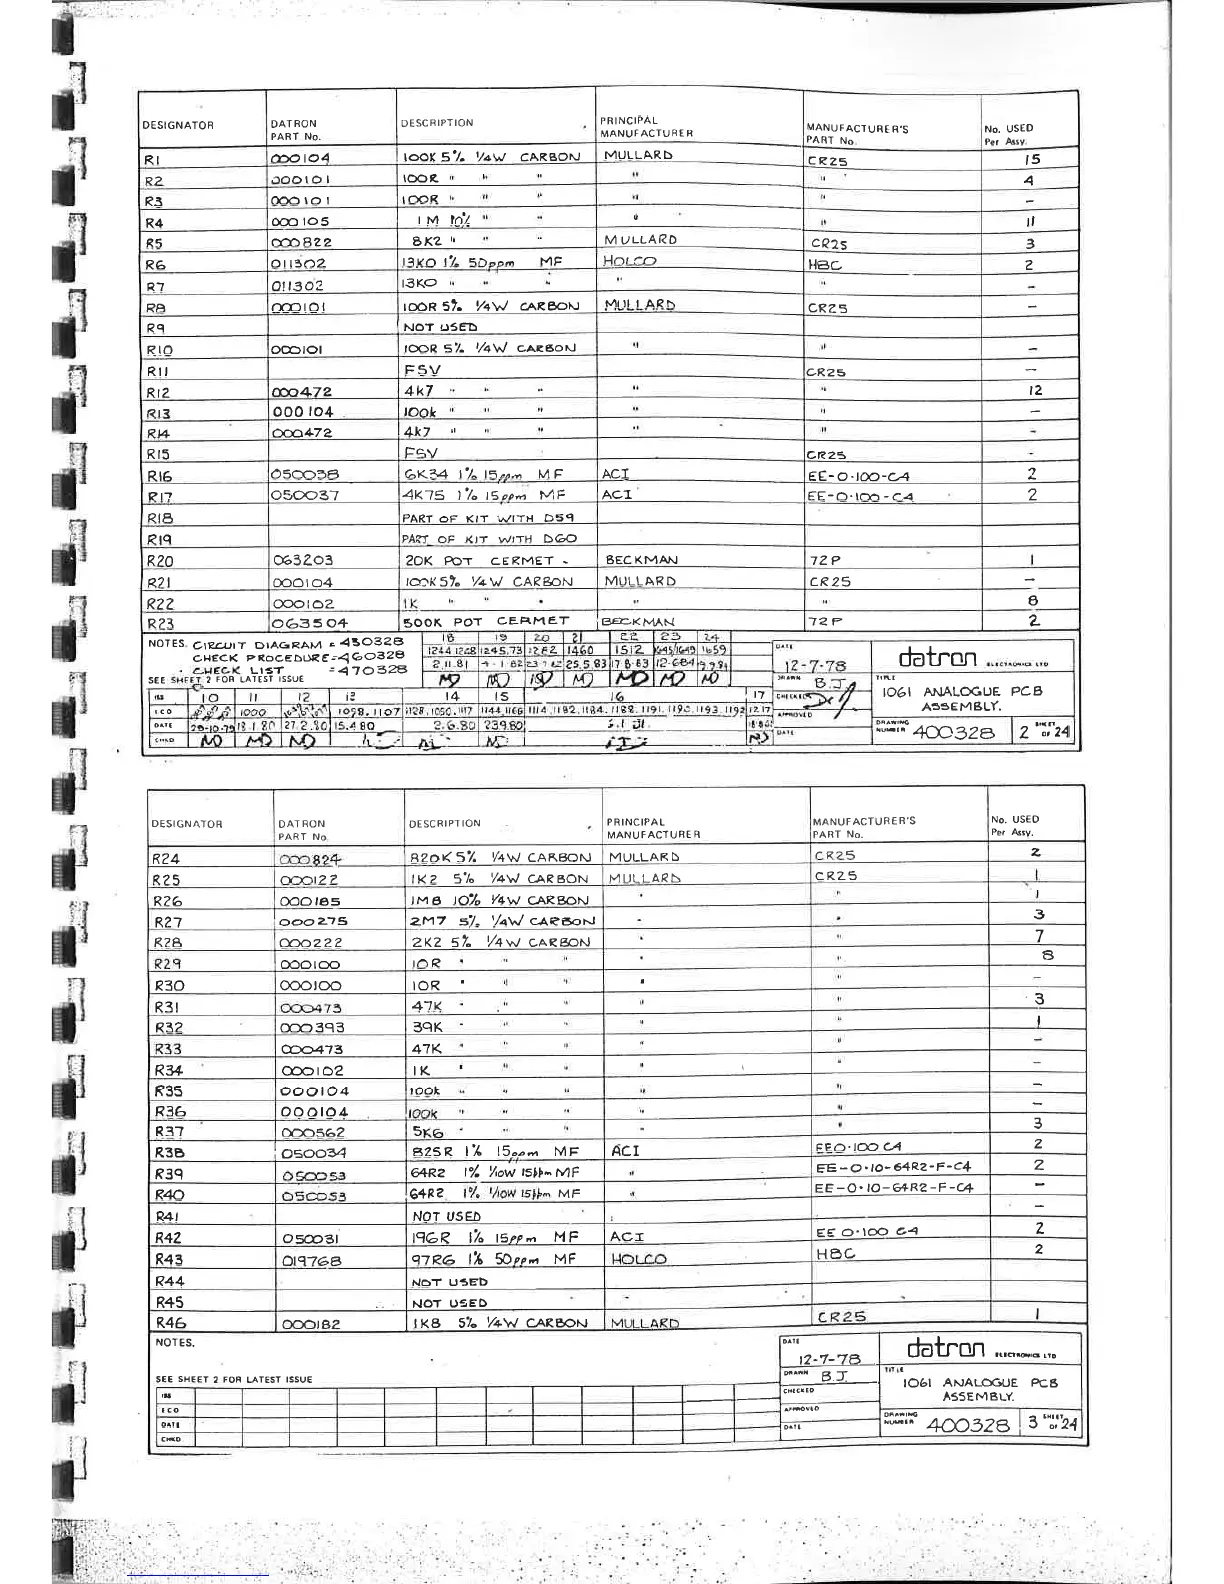 DESIGNATOR DATRON PART No. DESCRIPTION PRINCIPAL MANUFACTURER MANUFACTURER'S PART No. No. USED Per Assy.
R1 000104 100K 5% 1/4W CARBON MULLARD CR25 15
R2 000101 100R " " " " " 4
R3 000101 100R " " " " " –
R4 000105 1M 10% " " " " 11
R5 000822 8K2 " " " MULLARD CR25 3
R6 011302 13K0 1% 50ppm MF HOLCO H8C 2
R7 011302 13K0 " " " " " –
R8 000101 100R 5% 1/4W CARBON MULLARD CR25 –
R9 NOT USED
R10 000101 100R 5% 1/4W CARBON " " –
R11 FSV CR25 –
R12 000472 4k7 " " " " " 12
R13 000104 100k " " " " " –
R14 000472 4k7 " " " " " –
R15 FSV CR25 -
R16 050038 6K34 1% 15ppm MF ACI EE-0·100-C4 2
R17 050037 4K75 1% 15ppm MF ACI EE-0·100-C4 2
R18 PART OF KIT WITH D59
R19 PART OF KIT WITH D60
R20 063203 20K POT CERMET - BECKMAN 72P 1
R21 000104 100K 5% 1/4W CARBON MULLARD CR25 –
R22 000102 1K " " " " " 8
R23 063504 500K POT CERMET BECKMAN 72P 2
NOTES. CIRCUIT DIAGRAM = 430328
CHECK PROCEDURE = 460328
CHECK LIST = 470328
SEE SHEET 2 FOR LATEST ISSUE
18 19 20 21 22 23 24
1244 1268 1245,73 1282 1460 1512 1645/1649 1659
2.11.81 25.5.83 17.8.83 12-6-84
DATE 12-7-78
DRAWN B.J.
CHECKED
APPROVED
DATE
datron ELECTRONICS LTD
TITLE 1061 ANALOGUE PCB ASSEMBLY.
DRAWING NUMBER 400328 SHEET 2 OF 24
ISS 10 11 12 13 14 15 16 17
ECO 1000 1098, 1107 1128, 1050, 1117 1144, 1166 1114, 1182, 1184, 1188, 1191, 1190, 1193, 1192
DATE 29-10-79 18.1.80 27.2.80 15.4.80 2.6.80 23.9.80
CHKD
DESIGNATOR DATRON PART No. DESCRIPTION PRINCIPAL MANUFACTURER MANUFACTURER'S PART No. No. USED Per Assy.
R24 000824 820K 5% 1/4W CARBON MULLARD CR25 2
R25 000122 1K2 5% 1/4W CARBON MULLARD CR25 1
R26 000185 1M8 10% 1/4W CARBON " " 1
R27 000275 2M7 5% 1/4W CARBON " " 3
R28 000222 2K2 5% 1/4W CARBON " " 7
R29 000100 10R " " " " " 8
R30 000100 10R " " " " " –
R31 000473 47K " " " " " 3
R32 000393 39K " " " " " 1
R33 000473 47K " " " " " –
R34 000102 1K " " " " " –
R35 000104 100k " " " " " –
R36 000104 100k " " " " " –
R37 000562 5K6 " " " " " 3
R38 050034 825R 1% 15ppm MF ACI EE0·100 C4 2
R39 050053 64R2 1% 1/10W 15ppm MF " EE-0·10-64R2-F-C4 2
R40 050053 64R2 1% 1/10W 15ppm MF " EE-0·10-64R2-F-C4 –
R41 NOT USED –
R42 050031 196R 1% 15ppm MF ACI EE 0·100 C4 2
R43 019768 97R6 1% 50ppm MF HOLCO H8C 2
R44 NOT USED
R45 NOT USED
R46 000182 1K8 5% 1/4W CARBON MULLARD CR25 1
NOTES.
SEE SHEET 2 FOR LATEST ISSUE
ISS
ECO
DATE
CHKD
DATE 12-7-78
DRAWN B.J.
CHECKED
APPROVED
DATE
datron ELECTRONICS LTD
TITLE 1061 ANALOGUE PCB ASSEMBLY.
DRAWING NUMBER 400328 SHEET 3 OF 24